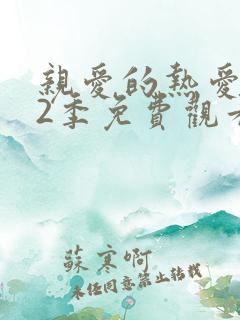 親愛的熱愛
2季免費觀看
蘇寒啊
未經同意禁止轉載